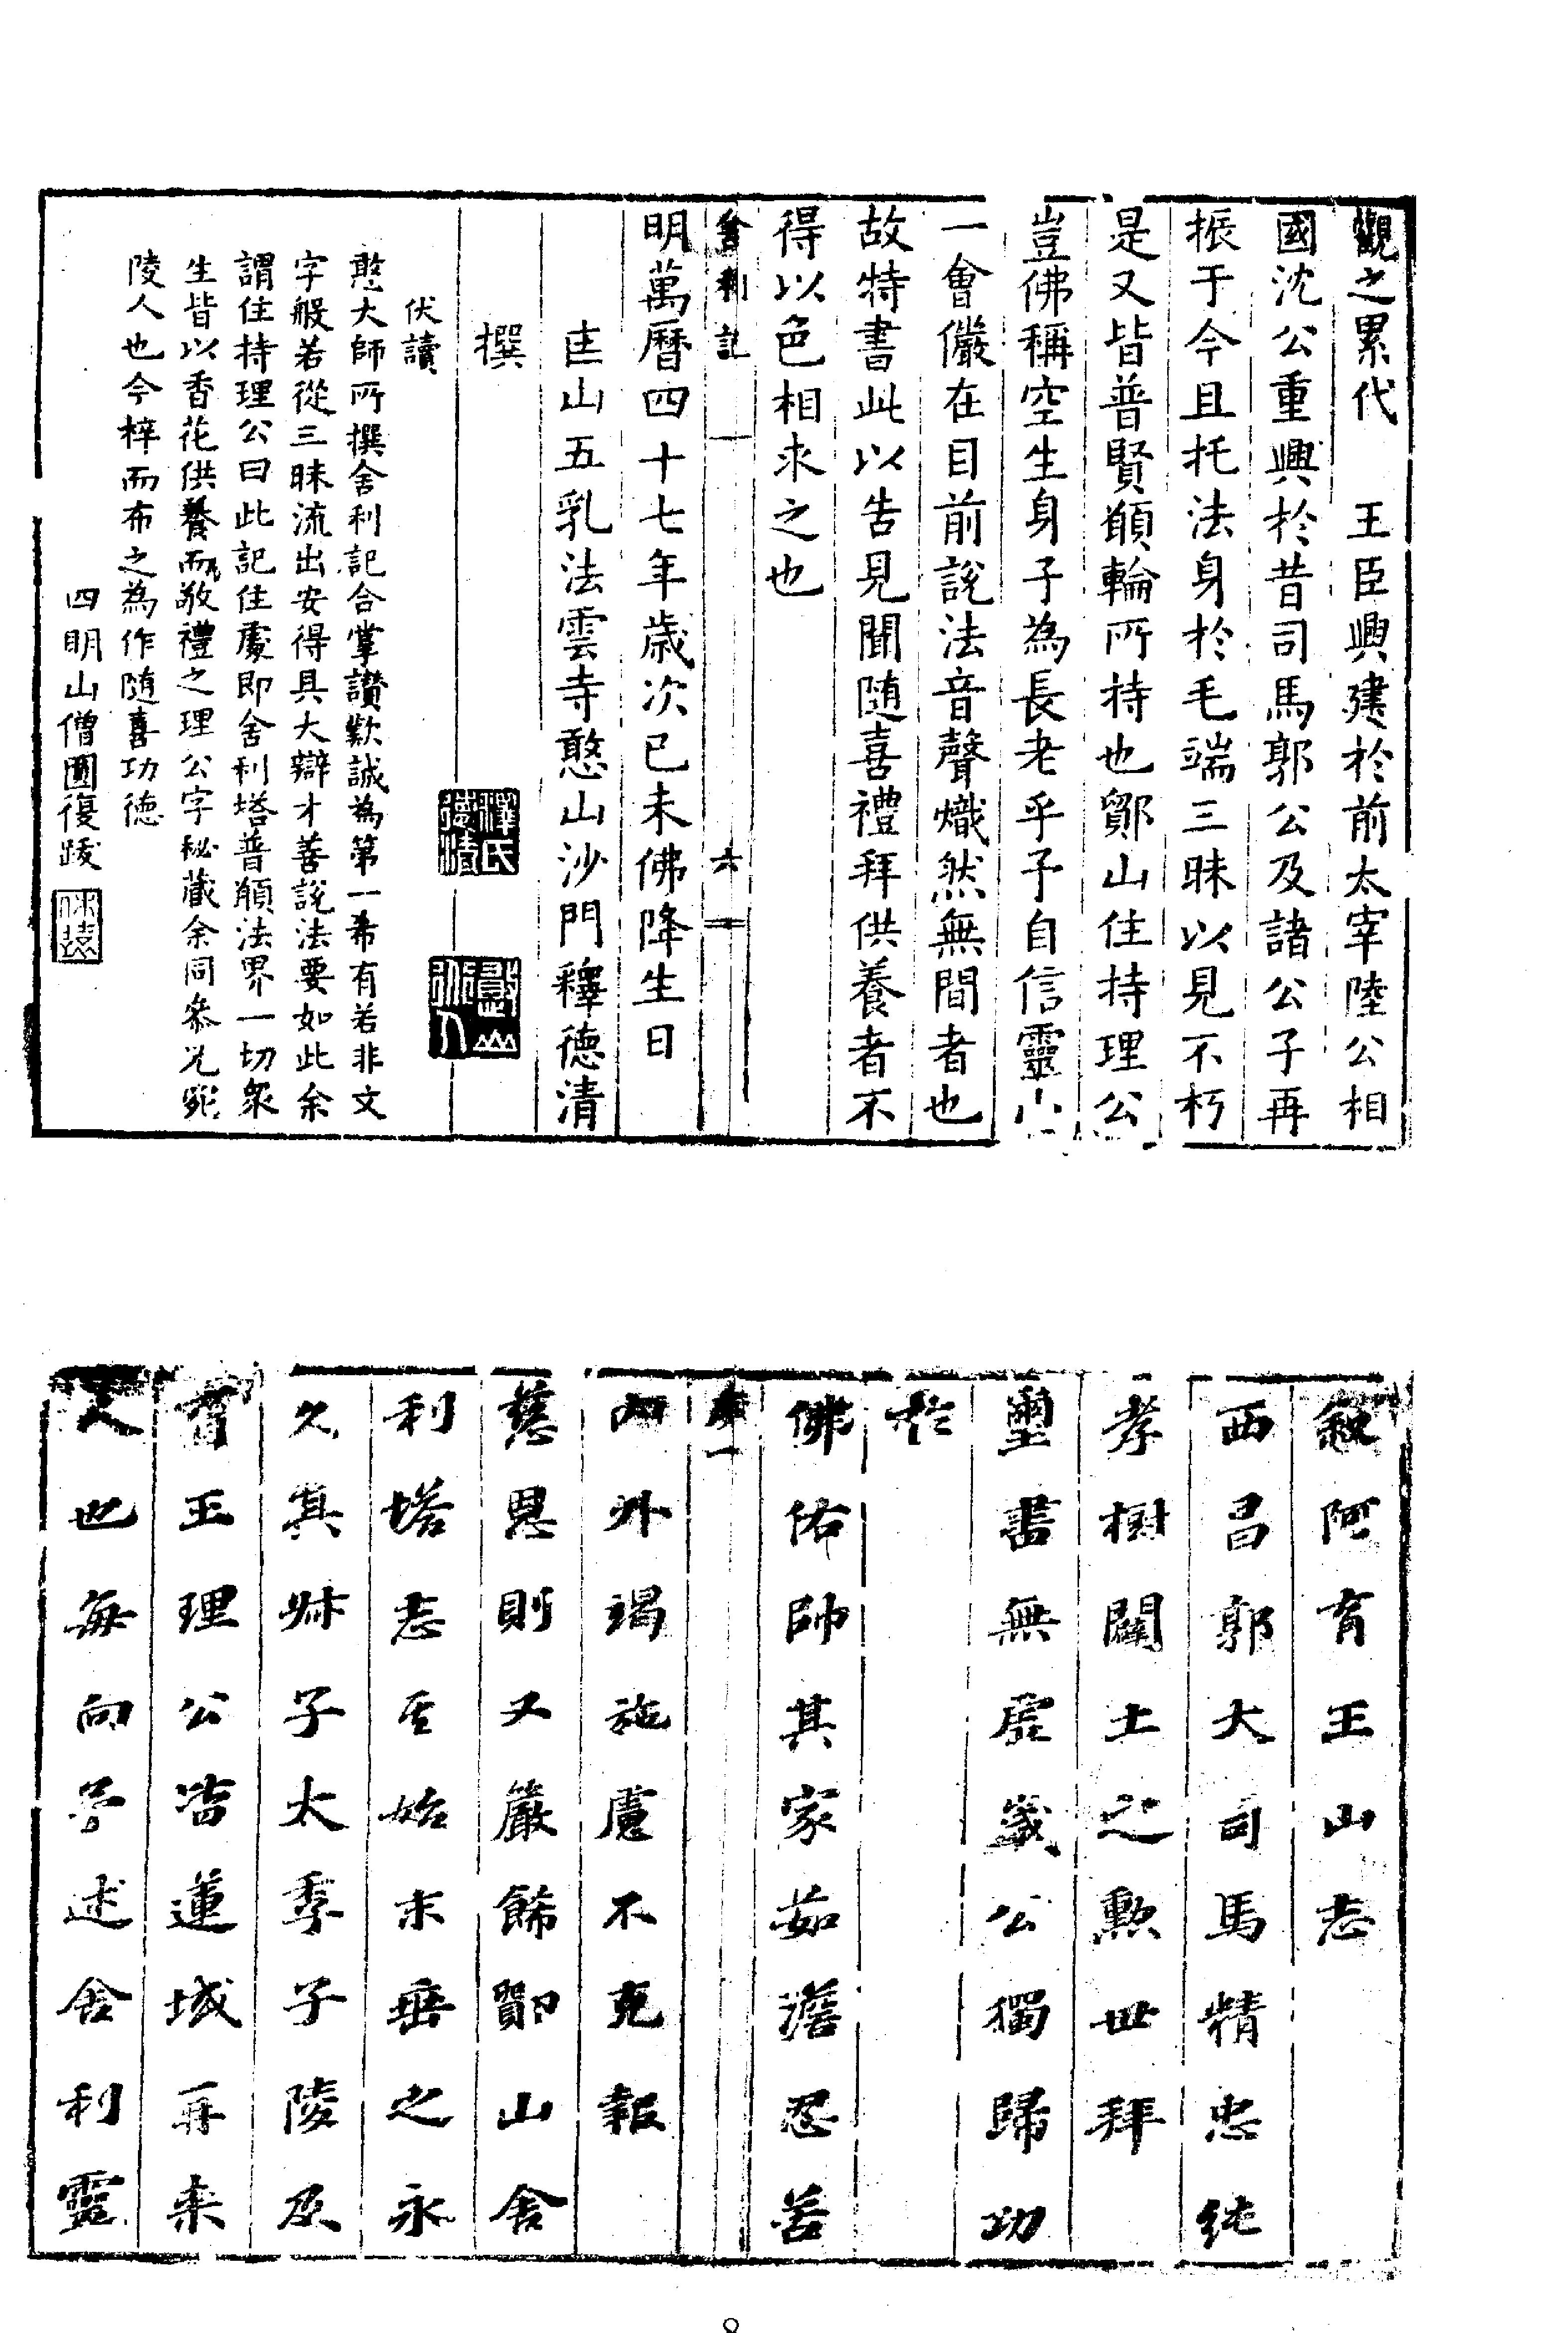 觀之累代　王臣興建於前太宰陸公相
國沈公重興於昔司馬郭公及諸公子再
振于今且托法身於毛端三昧以見不朽
是又皆普賢願輪所持也鄮山住持理公
豈佛稱空生身子為長老乎予自信靈山
一會儼在目前說法音聲熾然無間者也
故特書此以告見聞随喜禮拜供養者不
得以色相求之也
舍利記　六
明萬曆四十七年歲次己未佛降生日
匡山五乳法雲寺憨山沙門釋德清
撰
釋氏德清
憨山
伏讀
憨大師所撰舍利記合掌讚歎誠為第一希有若非文
字般若從三昧流出安得具大辯才善說法要如此余
謂住持理公曰此記住處即舍利塔普願法界一切眾
生皆以香花供養而敬禮之理公字秘藏余同叅兄宛
陵人也今梓而布之為作随喜功德
四明山僧圓復跋
敘阿育王山志
西昌郭大司馬精忠純
孝樹闢土之勲世拜
璽書無虛歲公獨歸功
於
佛佑帥其家茹澹忍苦
序一
內外竭施慮不克報
慈恩則又嚴餙鄮山舍
利塔志至始末垂之永
久其妳子太季子陵及
育王理公皆蓮域再来
人也每向予述舍利靈
8